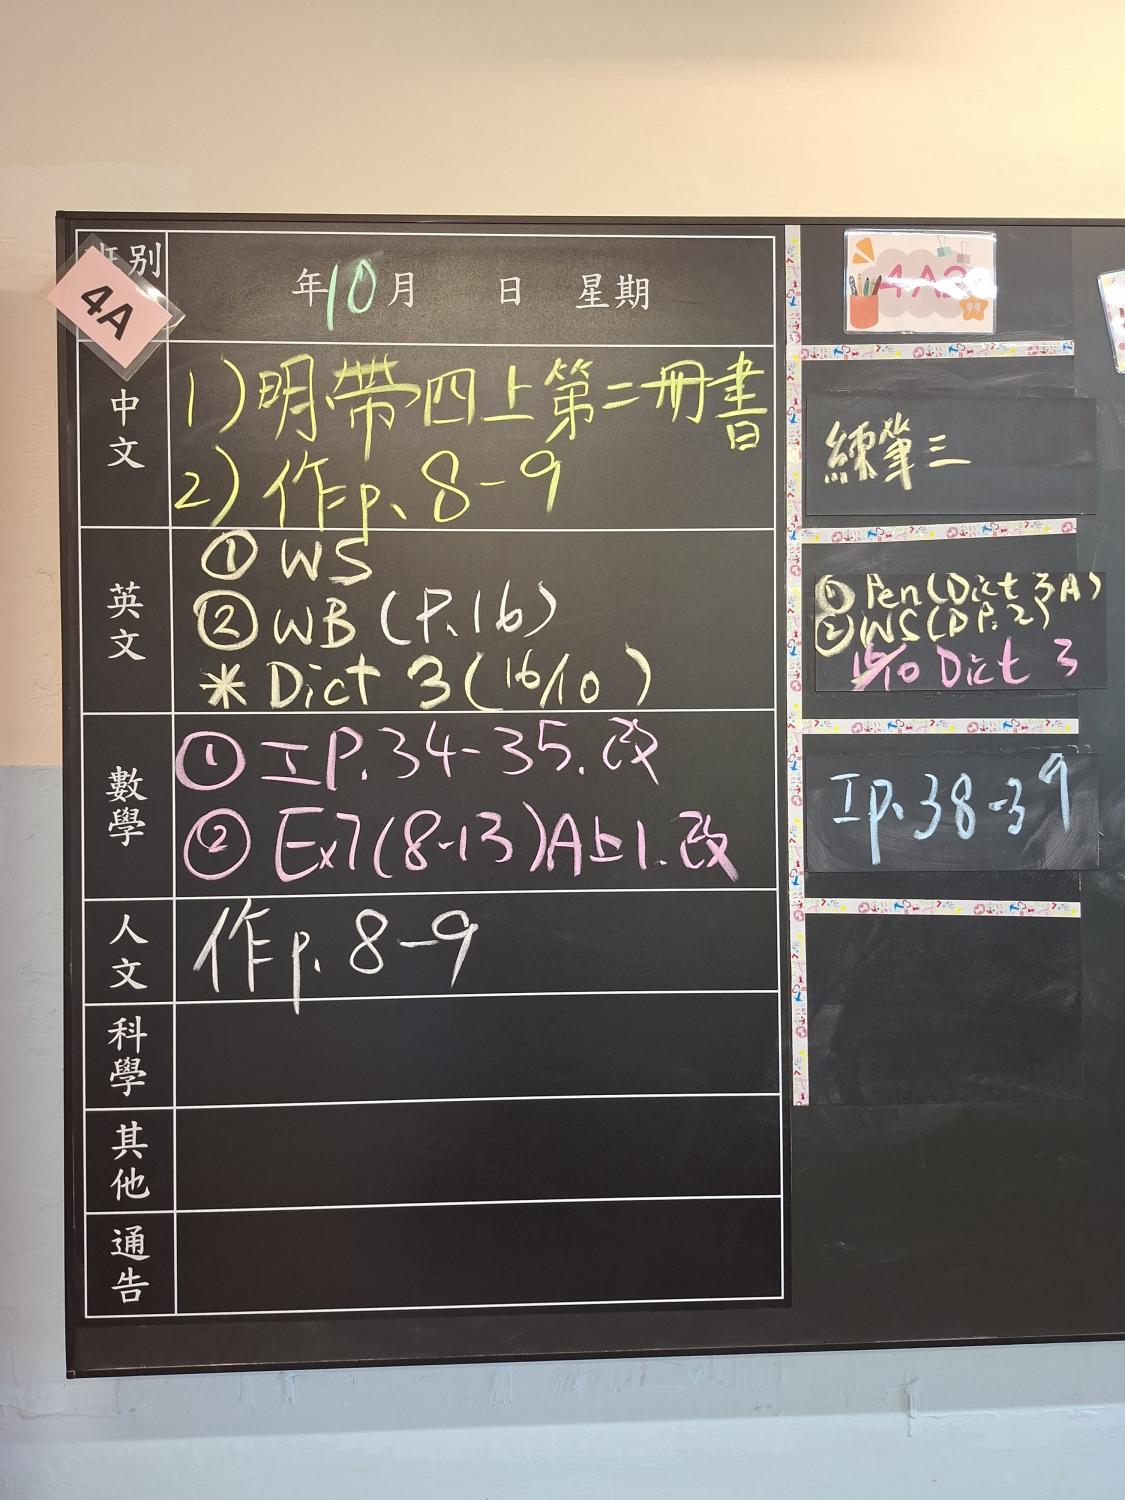 班別
4A
年10月 日 星期
中文
1)明帶四上第二冊書
2)作p.8-9
英文
① WS
② WB (P.16)
* Dict 3 (16/10)
數學
① 工P.34-35.改
② Ex7(8-13)A上1.改
人文
作p.8-9
科學
其他
通告
練筆三
① Pen(Dict 3A)
② WS(DP.2)
/10 Dict 3
工p.38-39